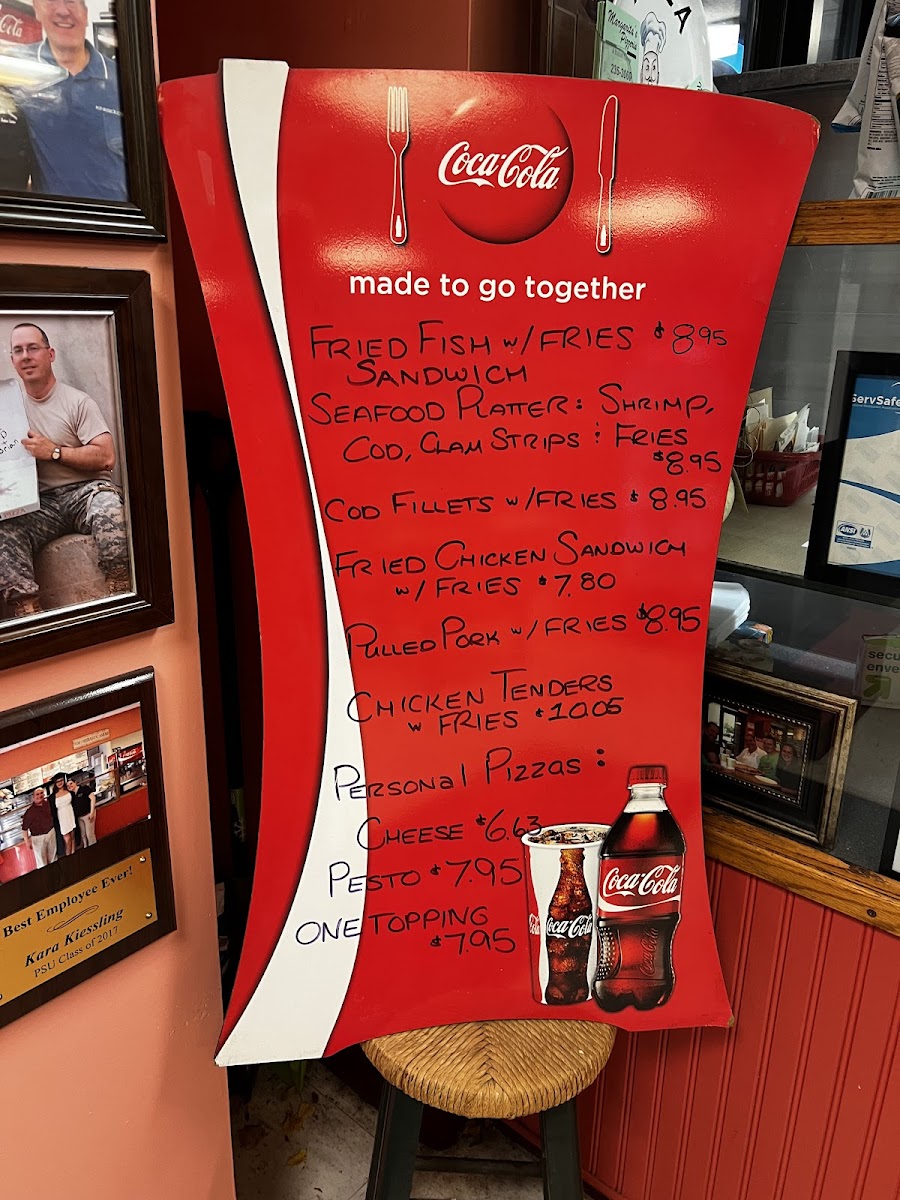 Coca-Cola
made to go together
FRIED FISH w/FRIES $8.95
SANDWICH
SEAFOOD PLATTER: SHRIMP,
COD, CLAM STRIPS : FRIES
$8.95
COD FILLETS w/FRIES $8.95
FRIED CHICKEN SANDWICH
w/FRIES $7.80
PULLED PORK w/FRIES $8.95
CHICKEN TENDERS
w FRIES $10.05
PERSONAL PIZZAS:
CHEESE $6.63
PESTO $7.95
ONE TOPPING
$7.95
Coca-Cola
Coca-Cola
Best Employee Ever!
Kara Kiessling
PSU Class of 2017
Margarita's
Pizzeria
ServSafe
ANSI
secu
enve